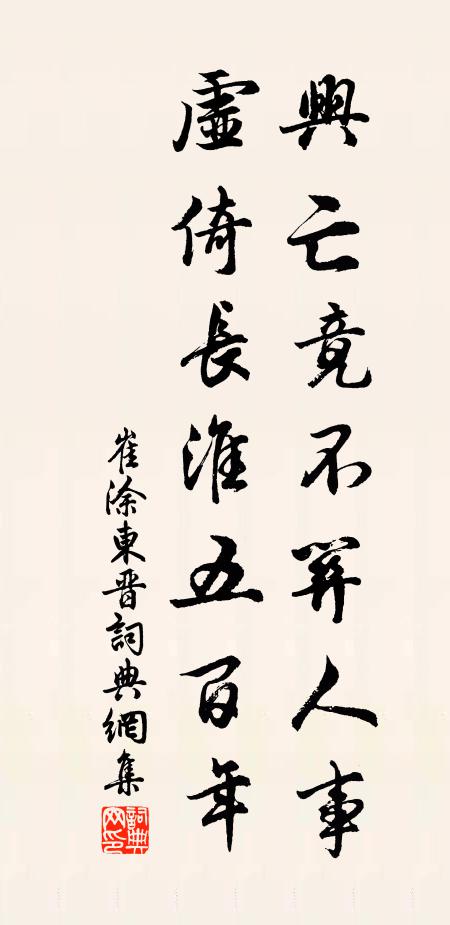 興亡竟不關人事
虛倚長淮五百年
崔涂東晋詞典網集
詞典网印